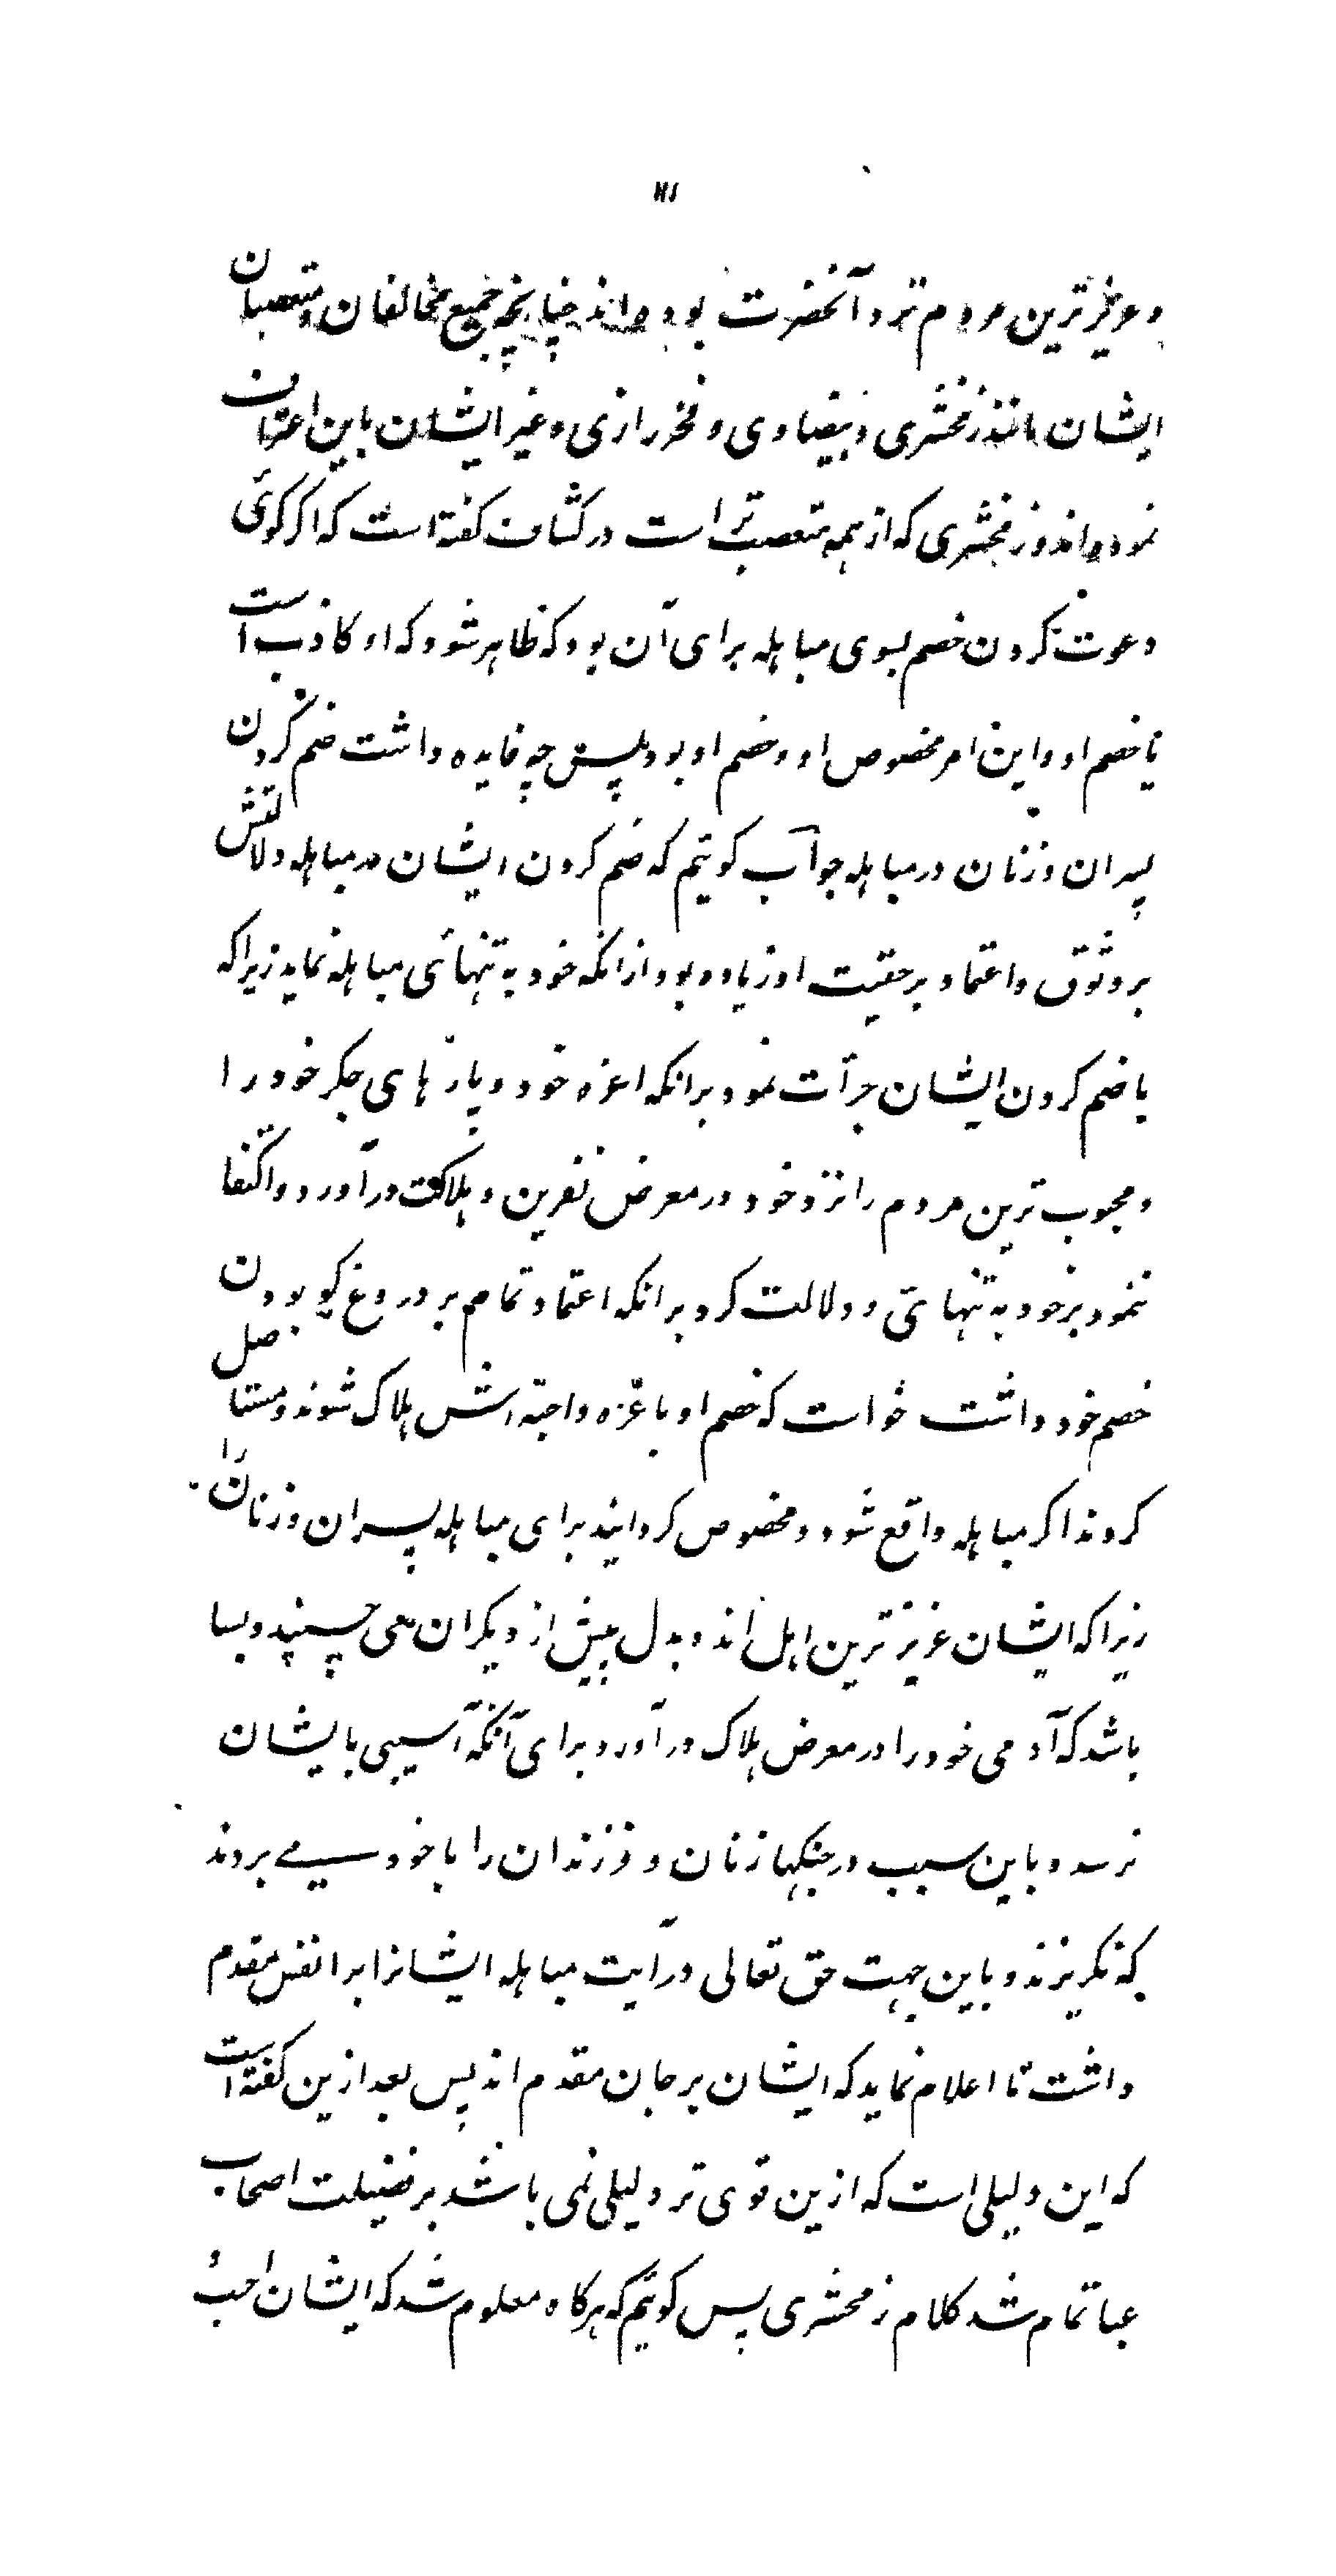 ۱۸۱
و عزیزترین مردم نزد آنحضرت بوده اند چنانچه جمیع مخالفان و متعصبان
ایشان مانند زمخشری و بیضاوی و فخر رازی و غیر ایشان باین اعتراف
نموده اند و زمخشری که از همه متعصب تر است در کشاف کفته است که اکر کوئی
دعوت کردن خصم بسوی مباهله برای آن بود که ظاهر شود که او کاذب است
یا خصم او و این امر مخصوص او و خصم او بود پس چه فایده داشت ضم کردن
پسران و زنان در مباهله جواب کوئیم که ضم کردن ایشان در مباهله دلالتش
بر وثوق و اعتماد بر حقیت او زیاده بود از انکه خود به تنهائی مباهله نماید زیراکه
با ضم کردن ایشان جرأت نمود برانکه اعزه خود و پارٰه های جکر خود را
و محبوب ترین مردم را نزد خود در معرض نفرین و هلاکت درآورد و اکتفا
ننمود بر خود به تنهائی و دلالت کرد برانکه اعتماد تمام بر دروغ کو بودن
خصم خود داشت خواست که خصم او با عزّه و احبّه اش هلاک شوند و مستاصل
کردند اکر مباهله واقع شود و مخصوص کردانید برای مباهله پسران و زنان را
زیراکه ایشان عزیز ترین اهل اند و بدل بیش از دیکران می چسپند و بسا
باشد که آدمی خود را در معرض هلاک درآورد برای آنکه آسیبی بایشان
نرسد و باین سبب در جنکها زنان و فرزندان را با خود می بردند
که نکریزند و باین جهت حق تعالی در آیت مباهله ایشانرا بر انفس مقدم
داشت تا اعلام نماید که ایشان بر جان مقدم اند پس بعد ازین کفته است
که این دلیلی است که ازین قوی تر دلیلی نمی باشد بر فضیلت اصحاب
عبا تمام شد کلام زمخشری پس کوئیم که هرکاه معلوم شد که ایشان احبّ